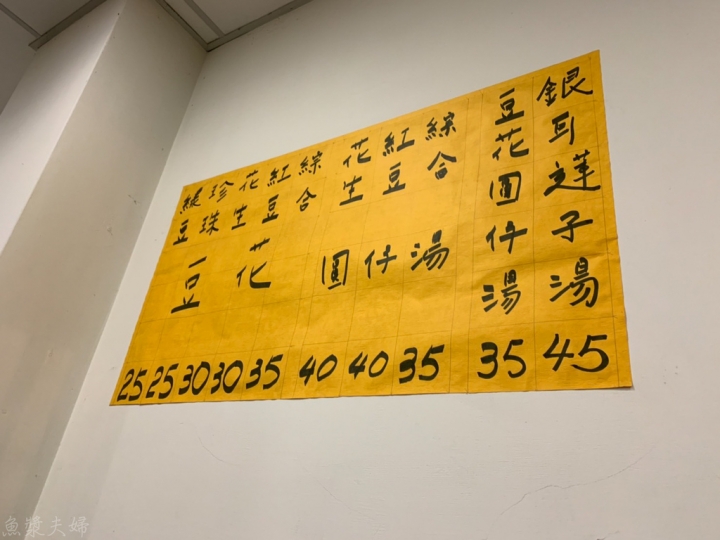 銀耳蓮子湯 45
豆花圓仔湯 35
綜合 35
紅豆 40
花生 40
圓仔湯
綜合 35
紅豆 30
花生 30
珍珠 25
綠豆 25
豆花
魚漿夫婦